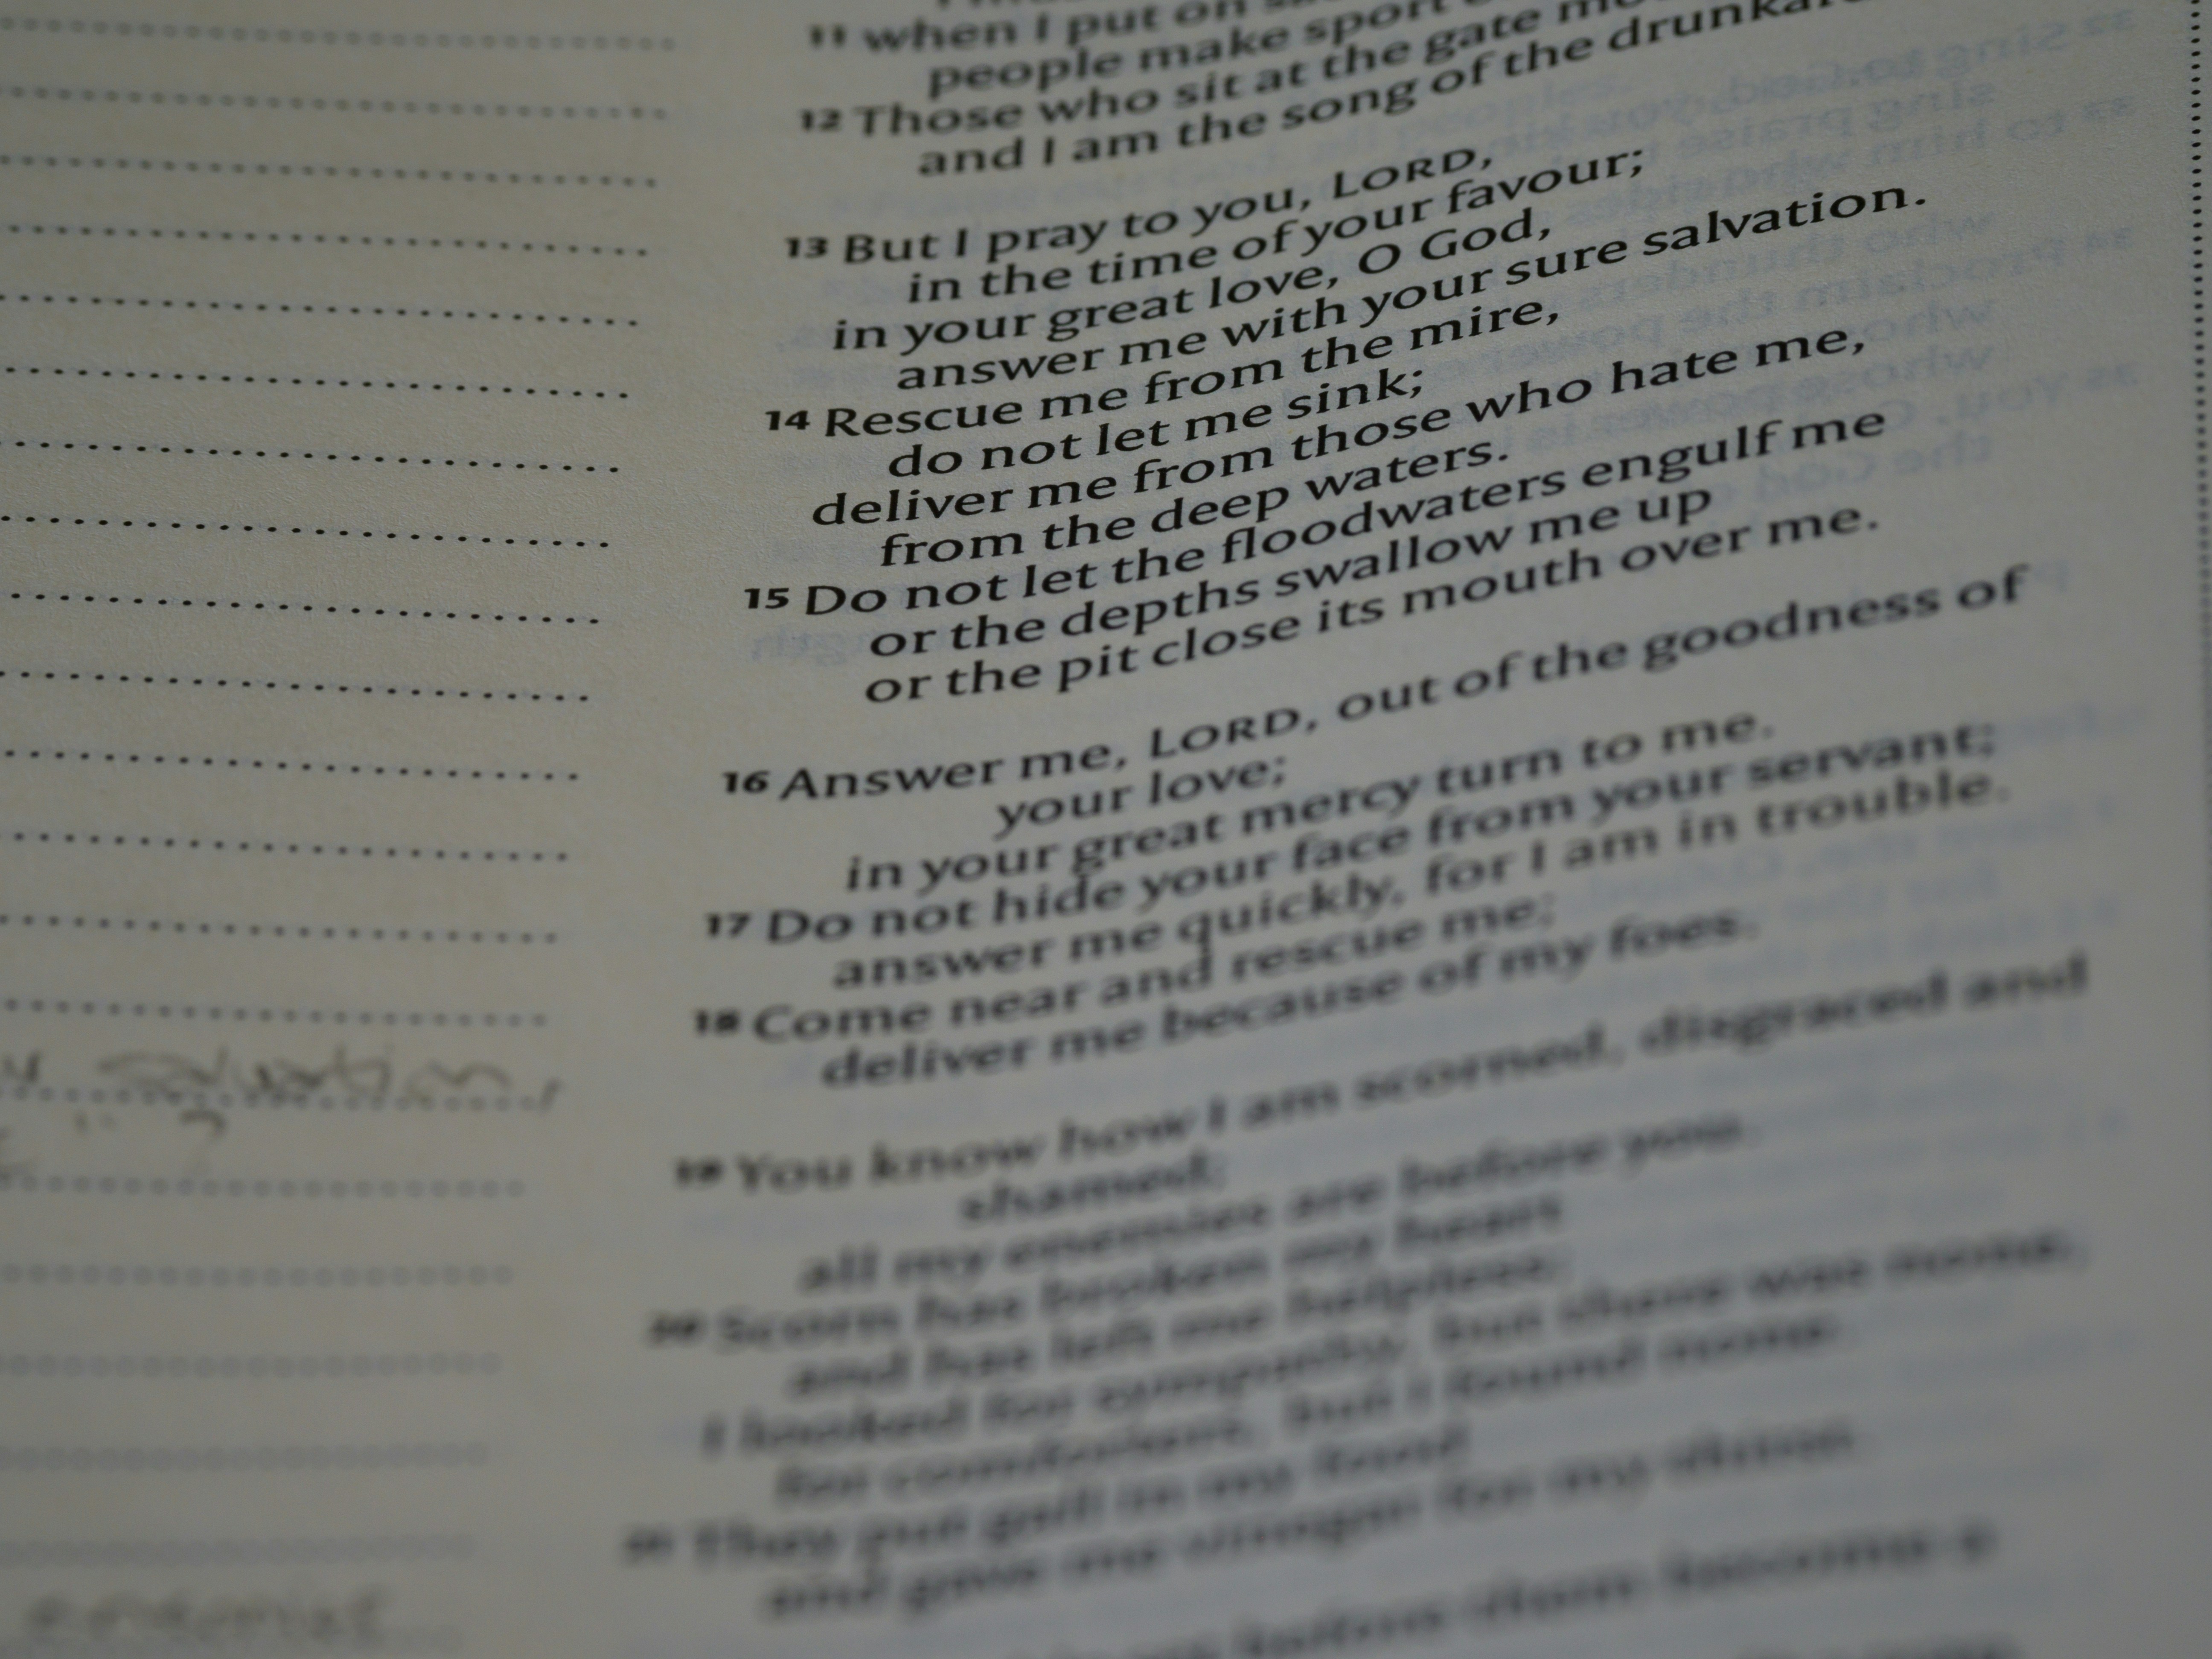 11 when I put on
people make sport
12 Those who sit at the gate
and I am the song of the
13 But I pray to you, LORD,
in the time of your favour;
in your great love, O God,
answer me with your sure salvation.
14 Rescue me from the mire,
do not let me sink;
deliver me from those who hate me,
from the deep waters.
15 Do not let the floodwaters engulf me
or the depths swallow me up
or the pit close its mouth over me.
16 Answer me, LORD, out of the goodness of
your love;
in your great mercy turn to me.
17 Do not hide your face from your servant;
answer me quickly, for I am in trouble.
18 Come near and rescue me;
deliver me because of my foes.
19 You know how I am scorned, disgraced and
shamed;
all my enemies are before you.
20 Scorn has broken my heart
and has left me helpless;
I looked for sympathy, but there was none,
for comforters, but I found none.
21 They put gall in my food
and gave me vinegar for my thirst.